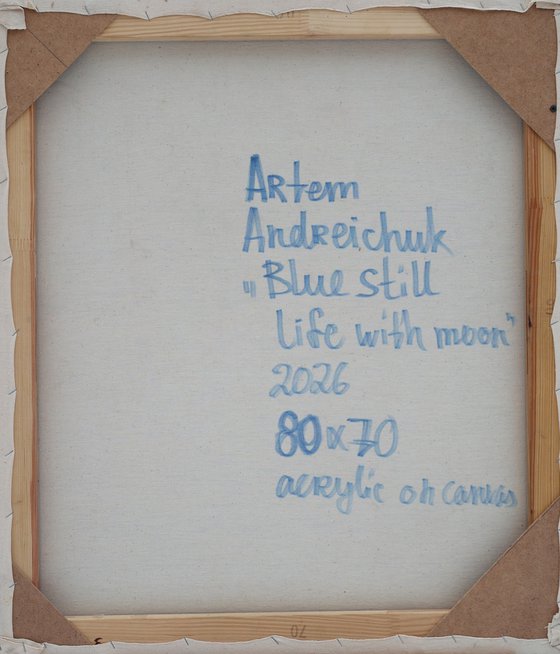 Artem
Andreichuk
„Blue still
life with moon"
2026
80x70
acrylic on canvas
70